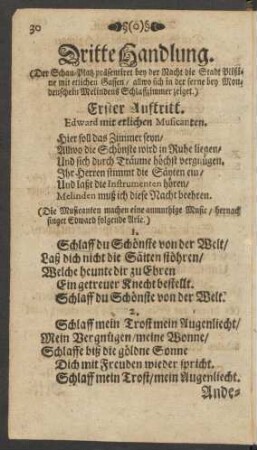 30
Dritte Handlung.
(Der Schau-Platz präsentiret bey der Nacht die Stadt
ne mit etlichen Gassen / allwo sich in der ferne bey Mon-
denschein Melindens Schlaffzimmer zeiget.)
Erster Auftritt.
Edward mit etlichen Musicanten.
Hier soll das Zimmer seyn/
Allwo die Schönste wird in Ruhe liegen/
Und sich durch Träume höchst vergnügen.
Ihr Herren stimmt die Säyten ein/
Und laßt die Instrumenten hören/
Melinden muß ich diese Nacht beehren.
(Die Musicanten machen eine anmuthige Music / hernach
singet Edward folgende Arie.)
1.
Schlaff du Schönste von der Welt/
Laß dich nicht die Säiten stöhren/
Welche heunte dir zu Ehren
Ein getreuer Knecht bestellt.
Schlaff du Schönste von der Welt.
2.
Schlaff mein Trost mein Augenliecht/
Mein Vergnügen/meine Wonne/
Schlaffe biß die göldne Sonne
Dich mit Freuden wieder spricht.
Schlaff mein Trost/mein Augenliecht.
Ande-